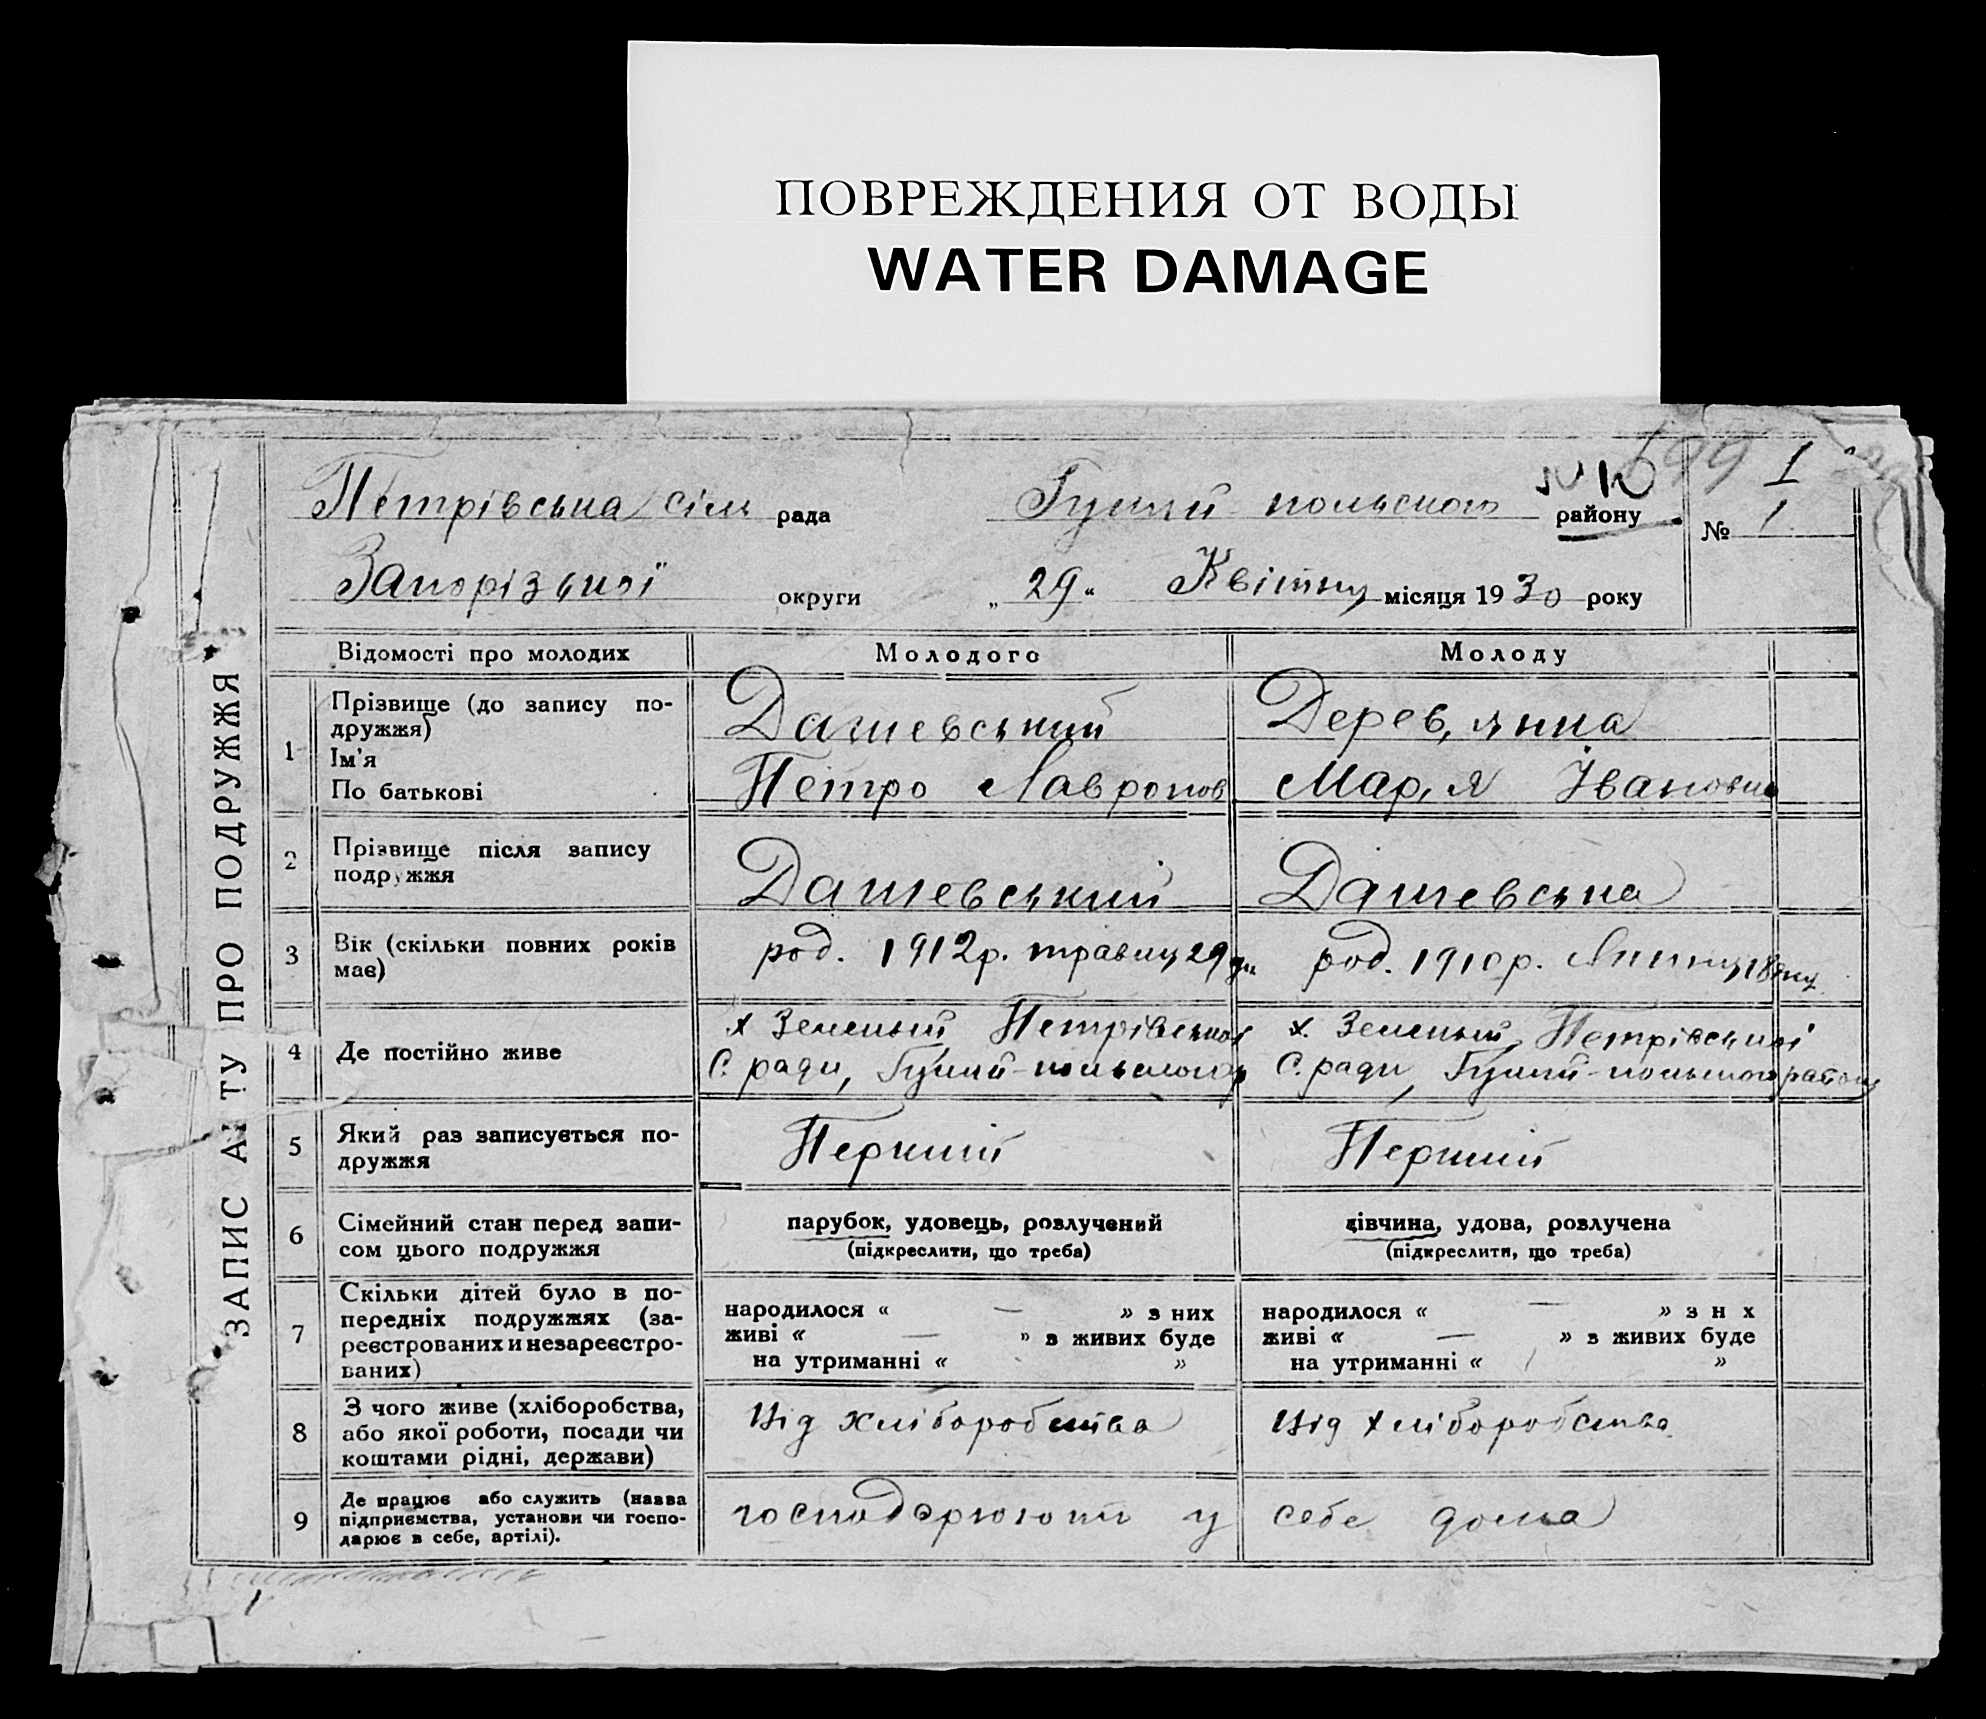 ПОВРЕЖДЕНИЯ ОТ ВОДЫ
WATER DAMAGE
1
Петрівська сіль рада Гуляй польского району № 1
Запорізької округи „ 29 “ Квітня місяця 1930 року
ЗАПИС АКТУ ПРО ПОДРУЖЖЯ
Відомості про молодих Молодого Молоду
1 Прізвище (до запису по-
дружжя) Дашевський Дерев,янка
Ім'я
По батькові Петро Лавронов Мар,я Івановна
2 Прізвище після запису
подружжя Дашевський Дашевська
3 Вік (скільки повних років
має) род. 1912р. травня 29 дн род. 1910р. Липня 18 дня
4 Де постійно живе х Зелений Петрівської х. Зелений, Петрівської
С. ради, Гуляй-польського р С. ради, Гуляй-польського району
5 Який раз записується по-
дружжя Перший Перший
6 Сімейний стан перед запи-
сом цього подружжя парубок, удовець, розлучений дівчина, удова, розлучена
(підкреслити, що треба) (підкреслити, що треба)
7 Скільки дітей було в по-
передніх подружжях (за-
реєстрованих и незареєстро-
ваних)
народилося « — » з них народилося « — » з н х
живі « — » з живих буде живі « — » з живих буде
на утриманні « » на утриманні « »
8 З чого живе (хліборобства,
або якої роботи, посади чи
коштами рідні, держави) Від хліборобства Від хліборобства
9 Де працює або служить (назва
підприємства, установи чи госпо-
дарює в себе, артілі). господарюють у себе дома